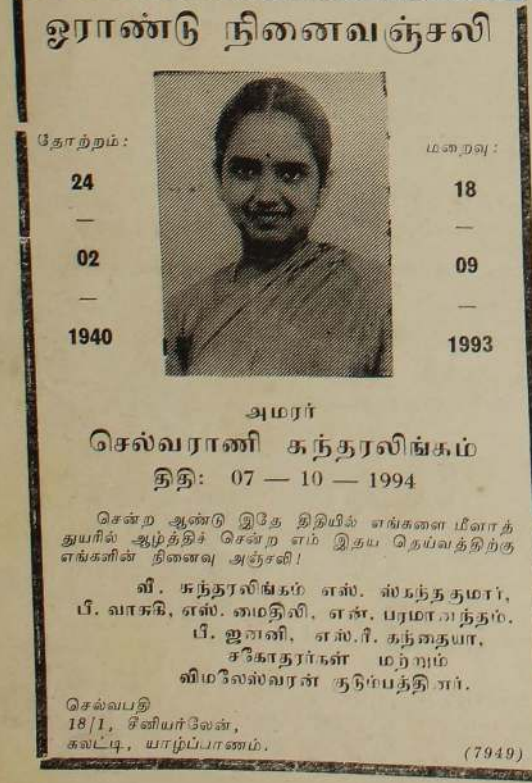 ஓராண்டு நினைவஞ்சலி
தோற்றம்:
24
—
02
—
1940
மறைவு:
18
—
09
—
1993
அமரர்
செல்வராணி சுந்தரலிங்கம்
திதி: 07 — 10 — 1994
சென்ற ஆண்டு இதே திதியில் எங்களை மீளாத்
துயரில் ஆழ்த்திச் சென்ற எம் இதய தெய்வத்திற்கு
எங்களின் நினைவு அஞ்சலி!
வீ. சுந்தரலிங்கம் எஸ். ஸ்கந்தகுமார்,
பீ. வாசுகி, எஸ். மைதிலி, என். பரமானந்தம்.
பி. ஜனனி, எஸ்.ரீ. கந்தையா,
சகோதரர்கள் மற்றும்
விமலேஸ்வரன் குடும்பத்தினர்.
செல்வபதி
18/1, சீனியர்லேன்,
கலட்டி, யாழ்ப்பாணம்.
(7949)